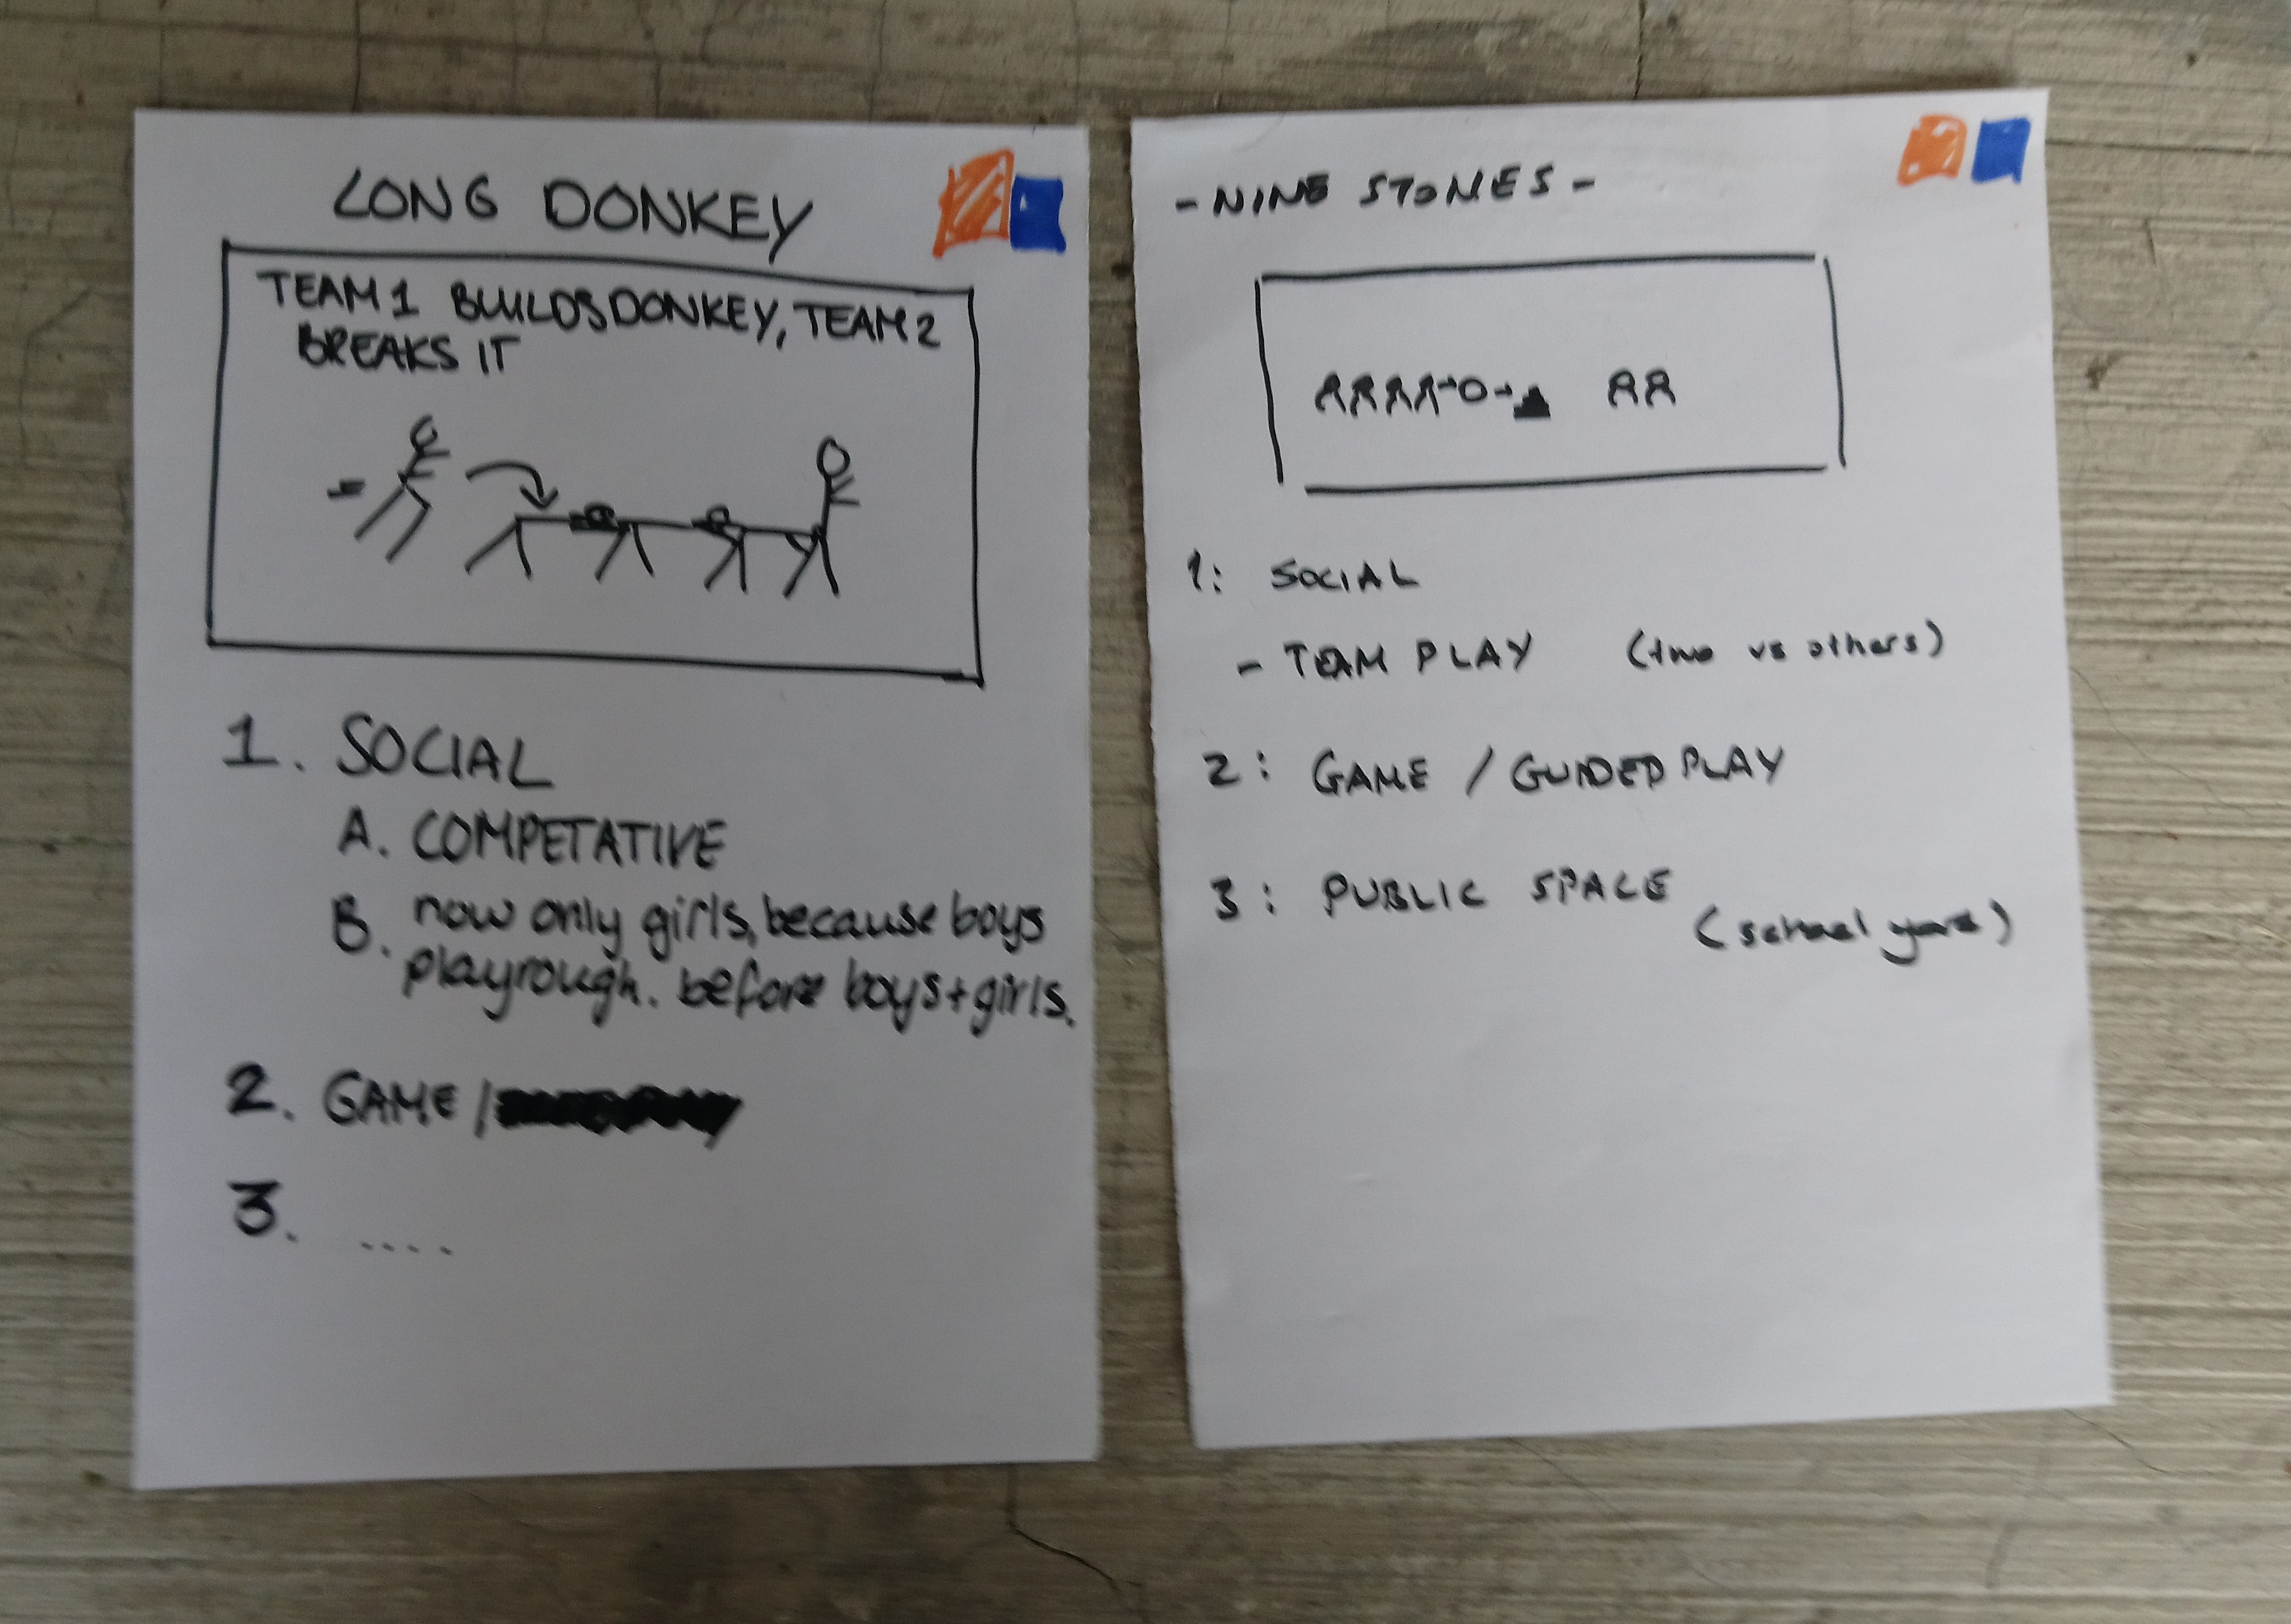 LONG DONKEY
TEAM 1 BUILDS DONKEY, TEAM 2
BREAKS IT
1. SOCIAL
A. COMPETATIVE
B. now only girls, because boys
play rough. before boys + girls.
2. GAME /
3. ....
- NINE STONES -
1: SOCIAL
- TEAM PLAY (two vs others)
2: GAME / GUIDED PLAY
3: PUBLIC SPACE
(school yard)